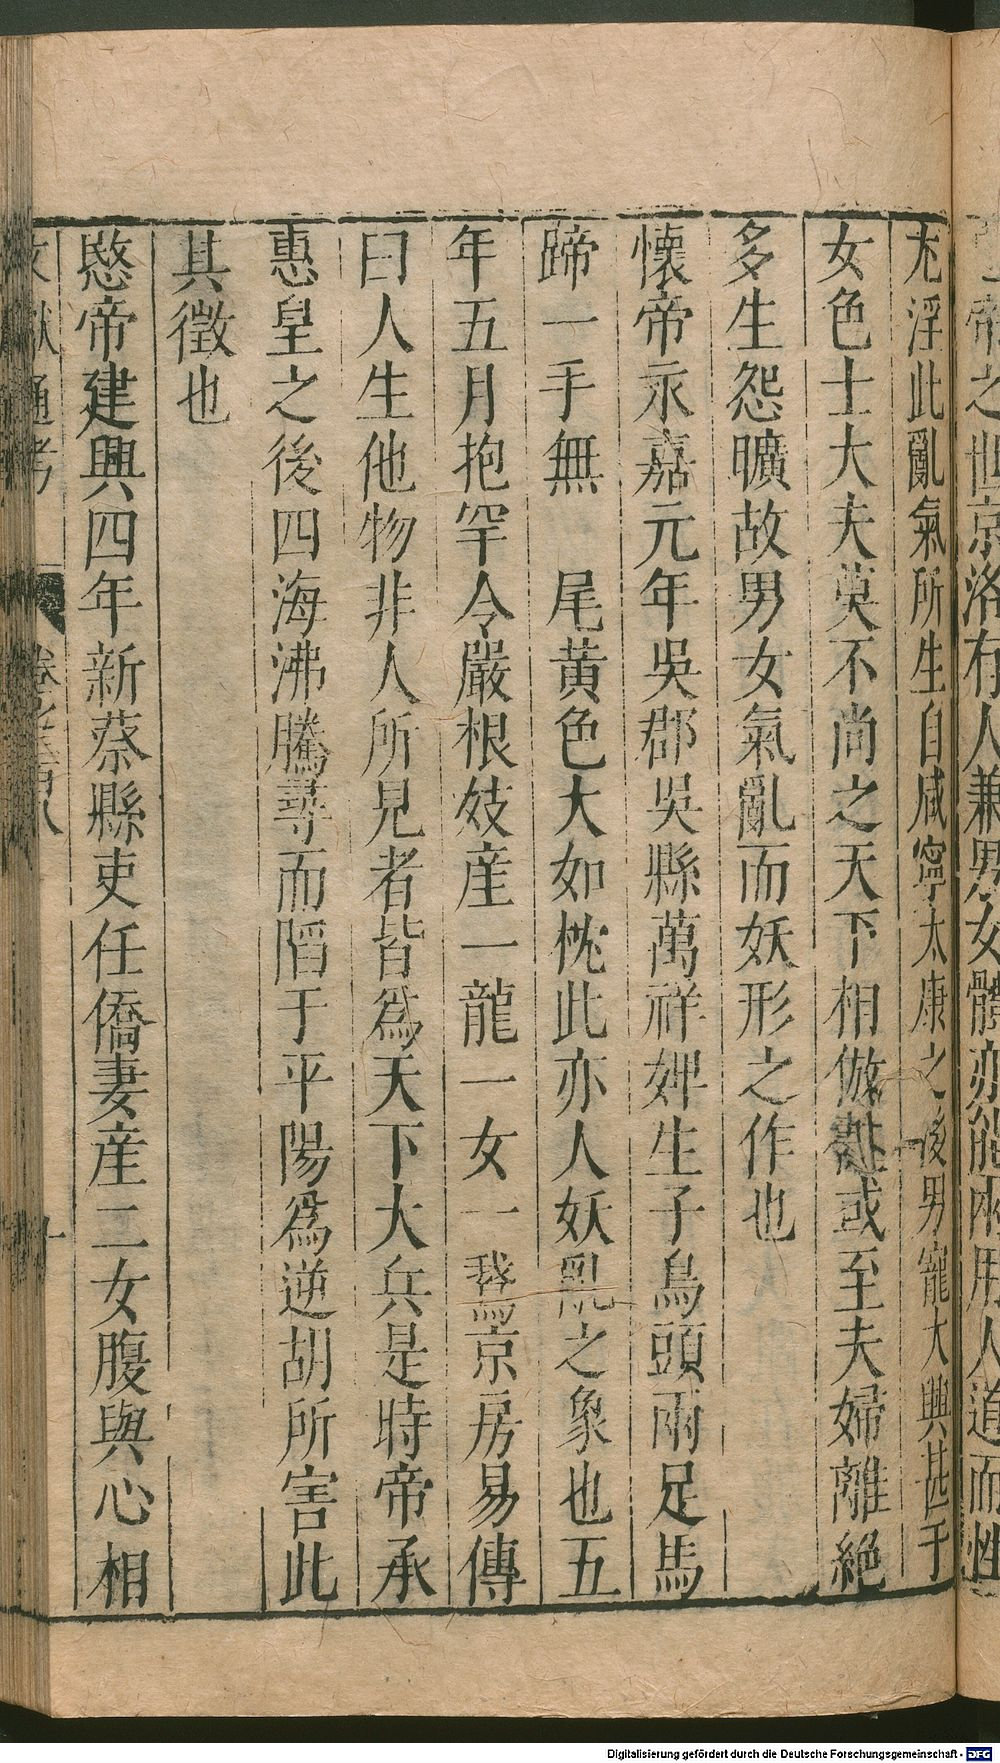 惠帝之世京洛有人兼男女體亦能兩用人道而性
尤淫此亂氣所生自咸寧太康之後男寵大興甚于
女色士大夫莫不尚之天下相倣或至夫婦離絕
多生怨曠故男女氣亂而妖形之作也
懷帝永嘉元年吳郡吳縣萬祥婢生子鳥頭兩足馬
蹄一手無 尾黃色大如枕此亦人妖亂之象也五
年五月抱罕令嚴根妓産一龍一女一鵞京房易傳
曰人生他物非人所見者皆爲天下大兵是時帝承
惠皇之後四海沸騰尋而陷于平陽爲逆胡所害此
其徵也
愍帝建興四年新蔡縣吏任僑妻産二女腹與心相
文獻通考 卷之三百八 十
Digitalisierung gefördert durch die Deutsche Forschungsgemeinschaft - DFG